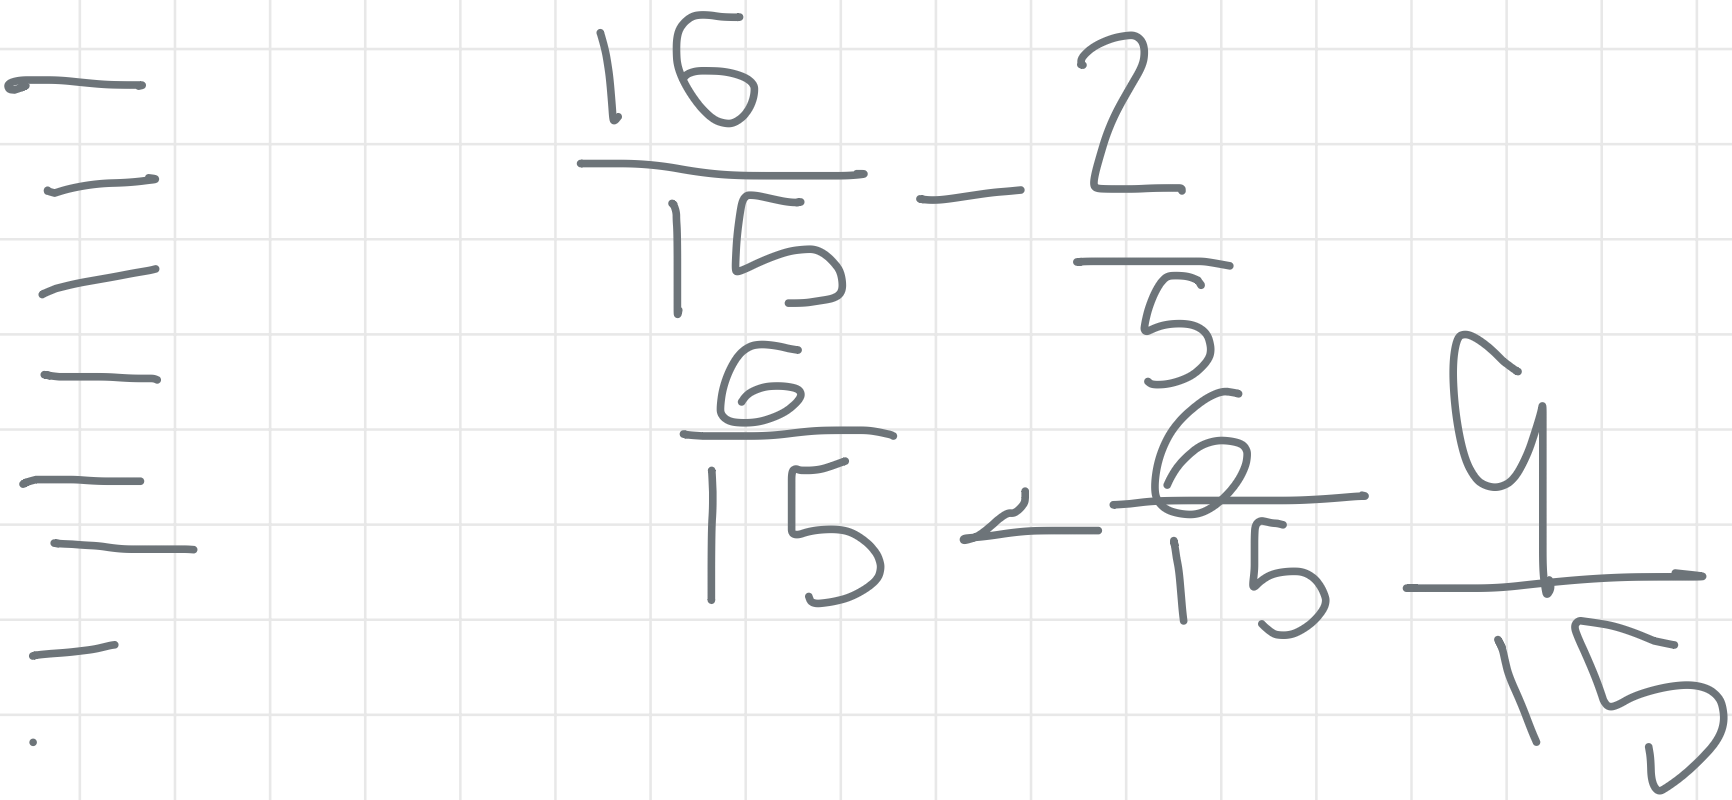 16/15 - 2/5
6/15 - 6/15 9/15